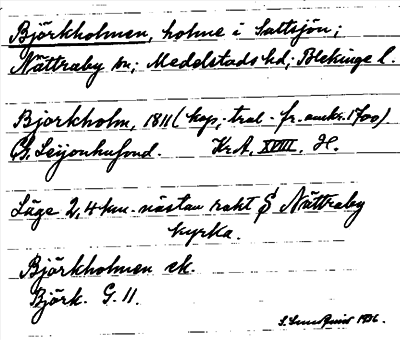 Björkholmen, holme i Saltsjön;
Nättraby sn; Medelstads hd; Blekinge l.
Björkholm, 1811 (kop. tral. fr. omkr. 1700)
G. Leijonhufvud. KrA. XVIII. H.
Läge 2,4 km. nästan rakt S Nättraby
kyrka.
Björkholmen ek.
Björk. G. 11.
S. Lundquist 1936.